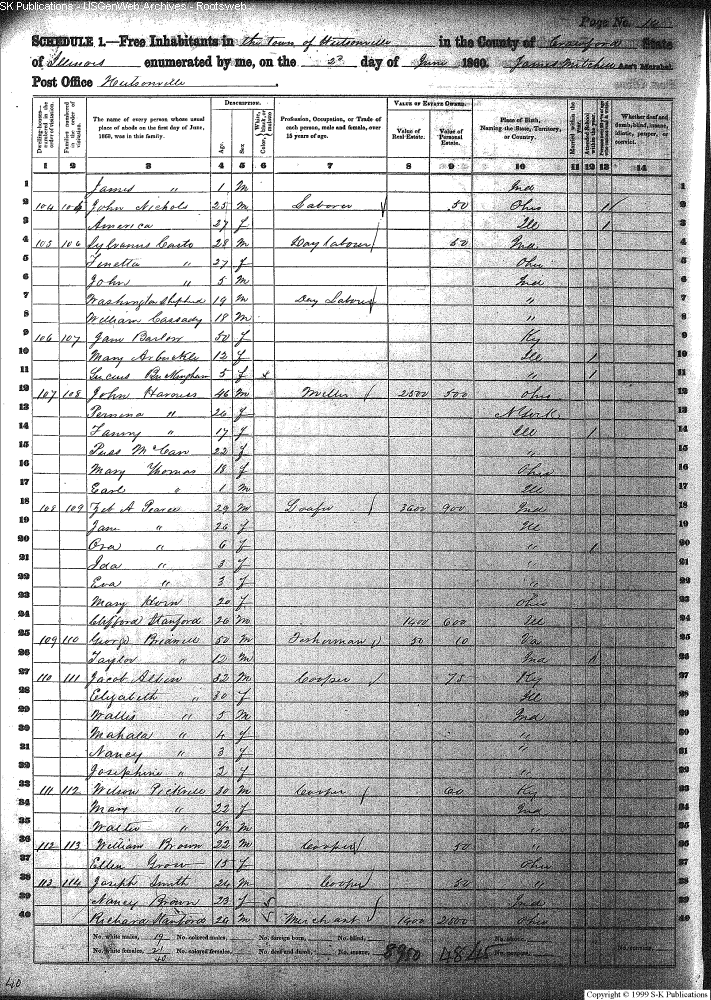 SK Publications - USGenWeb Archives - Rootsweb
Page No. 14
SCHEDULE 1.—Free Inhabitants in the Town of Hutsonville in the County of Crawford State
of Illinois enumerated by me, on the 2d day of June 1860. James Mitchell Ass't Marshal.
Post Office Hutsonville
DESCRIPTION. VALUE OF ESTATE OWNED.
Dwelling-houses—numbered in the order of visitation. Families numbered in the order of visitation. The name of every person whose usual place of abode on the first day of June, 1860, was in this family. Age. Sex. Color, White, black, or mulatto. Profession, Occupation, or Trade of each person, male and female, over 15 years of age. Value of Real Estate. Value of Personal Estate. Place of Birth, Naming the State, Territory, or Country. Married within the year. Attended School within the year. Whether deaf and dumb, blind, insane, idiotic, pauper, or convict.
1 2 3 4 5 6 7 8 9 10 11 12 13 14
1 James " 1 m Ind 1
2 104 John Nichols 25 m Laborer 50 Ohio 1 2
3 America 27 f Ill 1 3
4 105 106 Sylvanus Casto 28 m Day Labourer 50 Ind 4
5 " 27 f Ohio 5
6 John " 5 m Ind 6
7 Washington Shepherd 19 m Day Labourer " 7
8 William Cassady 18 m " 8
9 106 107 Jane Barlow 50 f Ky 9
10 Mary Arbuckle 12 f Ill 1 10
11 Lucius Buckingham 5 f " 1 11
12 107 108 John 46 m Miller 2500 500 Ohio 12
13 " 26 f N York 13
14 Fanny " 17 f Ill 1 14
15 McCan 22 f " 15
16 Mary Thomas 18 f Ohio 16
17 Earl " 1 m Ill 17
18 108 109 A Pearce 29 m Loafer 3600 900 Ind 18
19 Jane " 26 f Ill 19
20 Ora " 6 f " 1 20
21 Ida " 3 f " 21
22 Eva " 3 f " 22
23 Mary Horn 20 f Ohio 23
24 Clifford Stanford 26 m 1400 600 Ill 24
25 109 110 George 50 m Fisherman 50 10 Va 25
26 Taylor " 12 m Ind 1 26
27 110 111 Jacob 32 m Cooper 75 Ky 27
28 Elizabeth " 30 f Ill 28
29 Wallis " 5 m Ind 29
30 Mahala " 4 f " 30
31 Nancy " 3 f " 31
32 Josephine " 2 f " 32
33 111 112 Wilson 30 m Cooper 60 Ky 33
34 Mary " 22 f Ind 34
35 Walter " m " 35
36 112 113 William Brown 22 m Cooper 50 " 36
37 Ellen Grow 15 f Ohio 37
38 113 114 Joseph Smith 24 m Cooper 50 " 38
39 Nancy Brown 23 f Ind 39
40 Richard 24 m Merchant 1400 2500 Ohio 40
No. white males, 19 No. colored males, No. foreign born, No. blind,
No. white females, 21 No. colored females, No. deaf and dumb, No. insane, 8950 4845
40
40
Copyright © 1999 S-K Publications